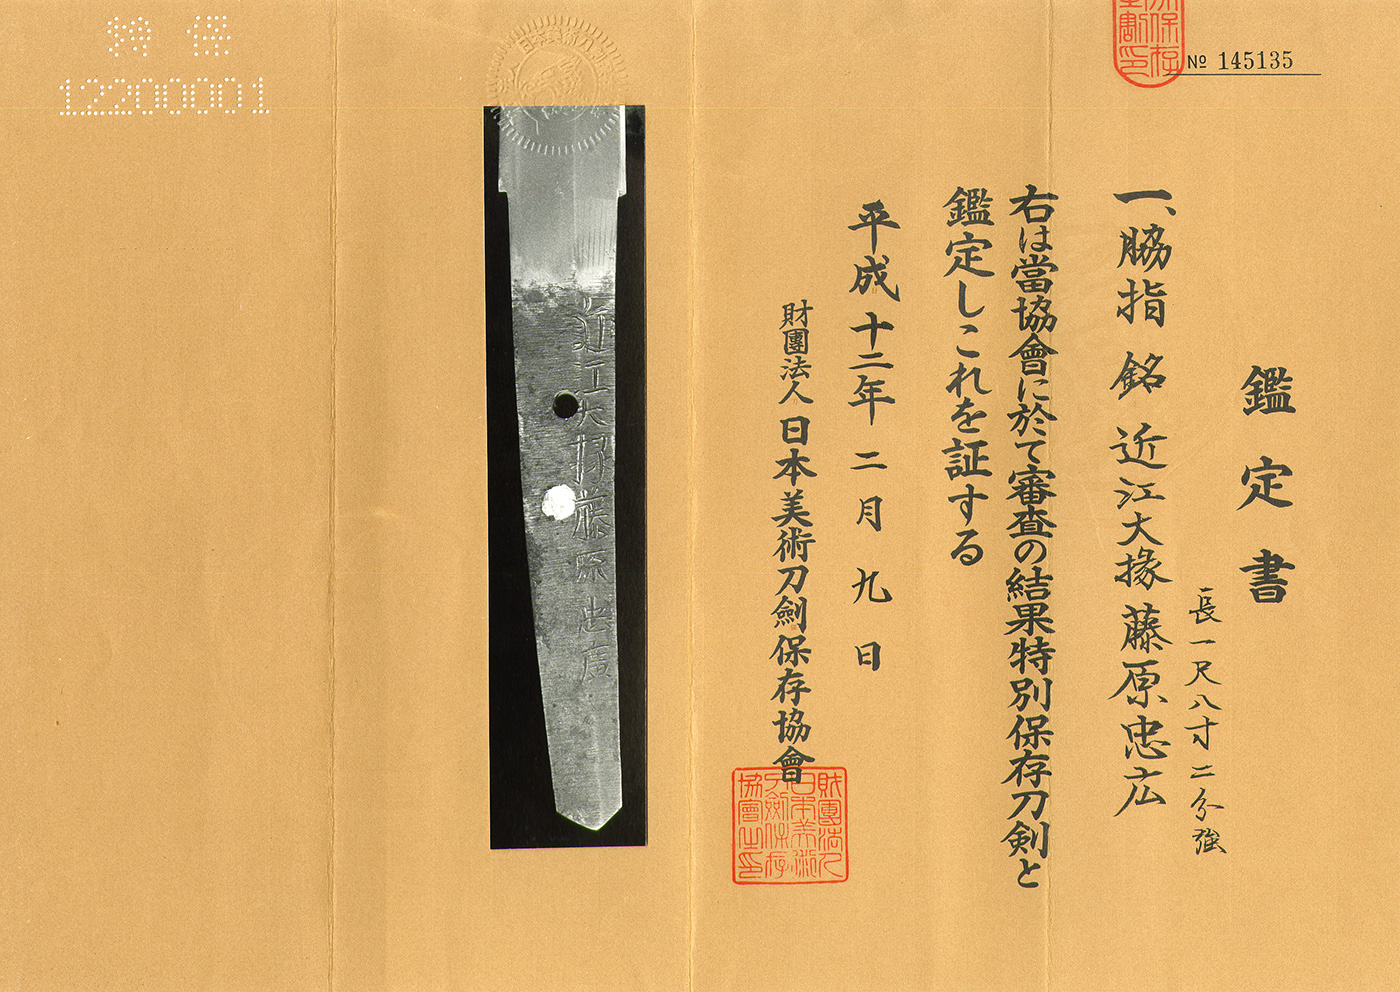 № 145135
鑑定書
一、脇指 銘 近江大掾藤原忠広
長一尺八寸二分強
右は當協會に於て審査の結果特別保存刀剣と
鑑定しこれを証する
平成十二年二月九日
財團法人日本美術刀劍保存協會
財團法人
日本美術
刀劍保存
協會之印
近江大掾藤原忠廣
特保
12200001